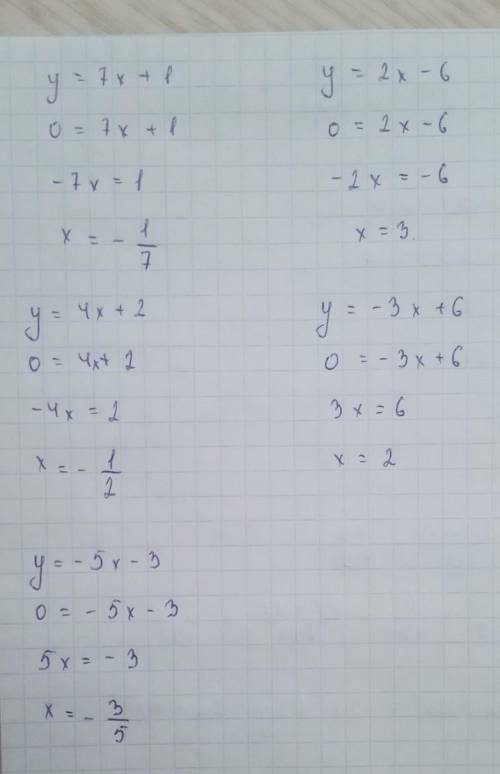 y = 7x + 1
0 = 7x + 1
-7x = 1
x = - 1/7
y = 2x - 6
0 = 2x - 6
-2x = -6
x = 3.
y = 4x + 2
0 = 4x + 2
-4x = 2
x = - 1/2
y = -3x + 6
0 = -3x + 6
3x = 6
x = 2
y = -5x - 3
0 = -5x - 3
5x = -3
x = - 3/5